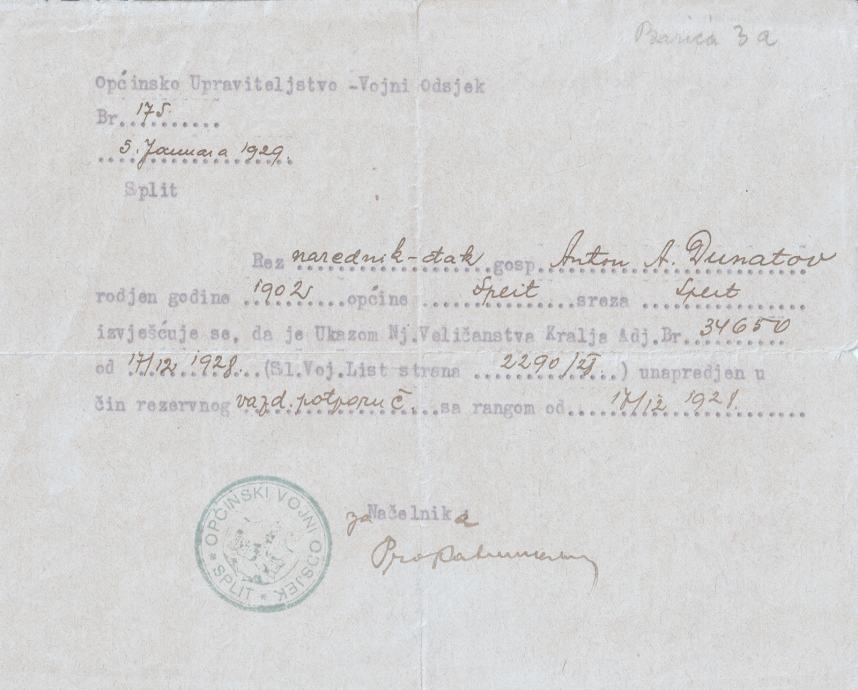 Barića 3a
Općinsko Upraviteljstvo -Vojni Odsjek
Br. 175.
5. Januara 1929.
Split
Rez narednik-đak gosp. Anton A. Dunatov
rodjen godine 1902 općine Split sreza Split
izvješćuje se, da je Ukazom Nj.Veličanstva Kralja Adj.Br. 34650
od 17/12 1928. (Sl.Voj.List strana 2290/28) unapredjen u
čin rezervnog vazd. potporuč. sa rangom od 17/12 1928.
za Načelnika
OPĆINSKI VOJNI ODSJEK
* SPLIT *